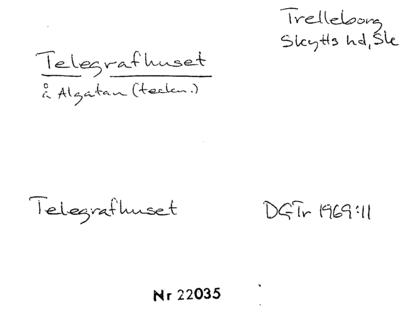 Trelleborg
Skytts hd, Sk
Telegrafhuset
å Algatan (teckn.)
Telegrafhuset
DGTr 1969:11
Nr 22035